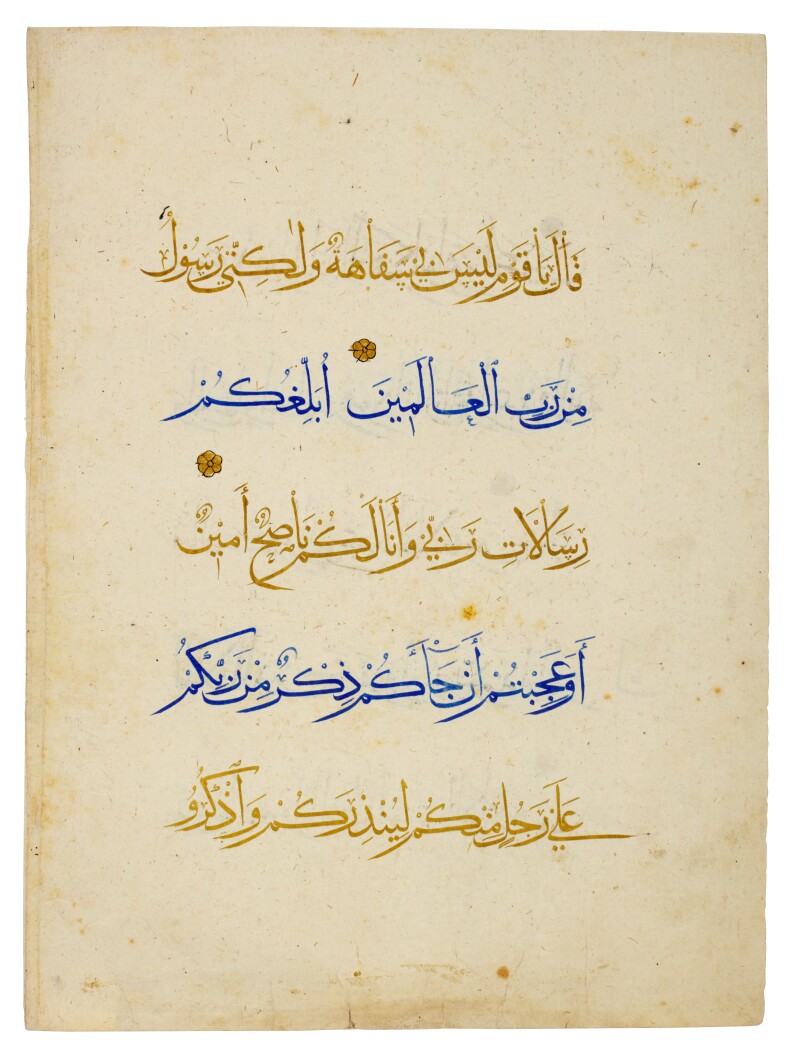 قَالَ يَا قَوْمِ لَيْسَ بِي سَفَاهَةٌ وَلَٰكِنِّي رَسُولٌ
مِنْ رَبِّ الْعَالَمِينَ أُبَلِّغُكُمْ
رِسَالَاتِ رَبِّي وَأَنَا لَكُمْ نَاصِحٌ أَمِينٌ
أَوَعَجِبْتُمْ أَنْ جَاءَكُمْ ذِكْرٌ مِنْ رَبِّكُمْ
عَلَى رَجُلٍ مِنْكُمْ لِيُنْذِرَكُمْ وَاذْكُرُو